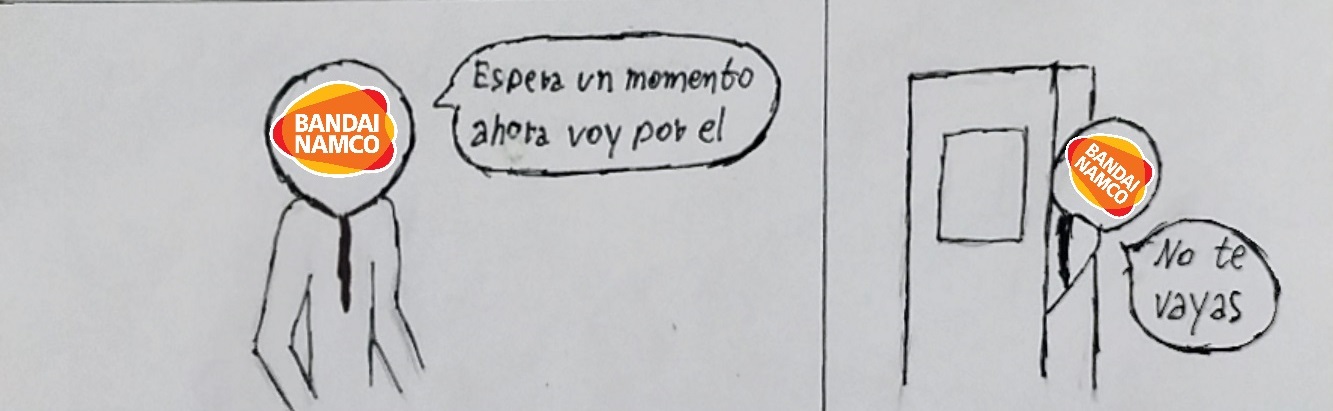 BANDAI
NAMCO
Espera un momento
ahora voy por el
BANDAI
NAMCO
No te
vayas